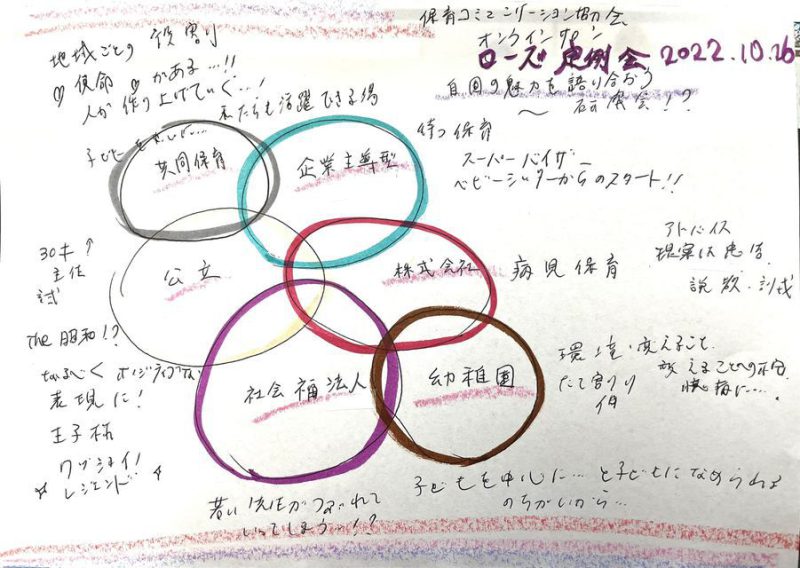 保育コミュニケーション協会
オンラインサロン
ローズ定例会 2022.10.26
自園の魅力を語り合おう
〜 研修会!?
地域ごとの 役割り
♡使命♡がある…!!
人が作り上げていく…!
私たちも活躍できる場
子ども
待つ保育
スーパーバイザー
ベビーシッターからのスタート!!
共同保育
企業主導型
公立
株式会社
病児保育
社会福法人
幼稚園
30才↑
主任
アドバイス
現実は
説教・
the 昭和!?
なるべく ポジティブな
表現に!
王子様
ワッショイ!
☆ レジェンド ☆
環境・変えること
変えることへの
若い先生がつぶれて
いってしまう…!?
子どもを中心に… と子どもになめられる
のちがいから…